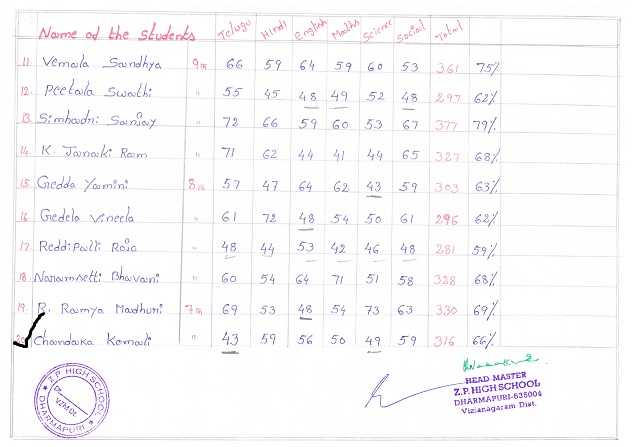 Name of the Students Telugu Hindi English Maths Science Social Total %
11. Vemala Sandhya 9th 66 59 64 59 60 53 361 75%
12. Peetala Swathi " 55 45 48 49 52 48 297 62%
13. Simhadri Sanjay " 72 66 59 60 53 67 377 79%
14. K. Janaki Ram " 71 62 44 41 44 65 327 68%
15. Gedda Yamini 8th 57 47 64 62 43 59 303 63%
16. Gedela Vineela " 61 72 48 54 50 61 296 62%
17. Reddipalli Roja " 48 44 53 42 46 48 281 59%
18. Naramsetti Bhavani " 60 54 64 71 51 58 328 68%
19. R. Ramya Madhuri 7th 69 53 48 54 73 63 330 69%
20. Chandaka Komali " 43 59 56 50 49 59 316 66%
Z.P. HIGH SCHOOL
Dt.
VZM Dt.
DHARMAPURI
HEAD MASTER
Z.P. HIGH SCHOOL
DHARMAPURI-535004
Vizianagaram Dist.